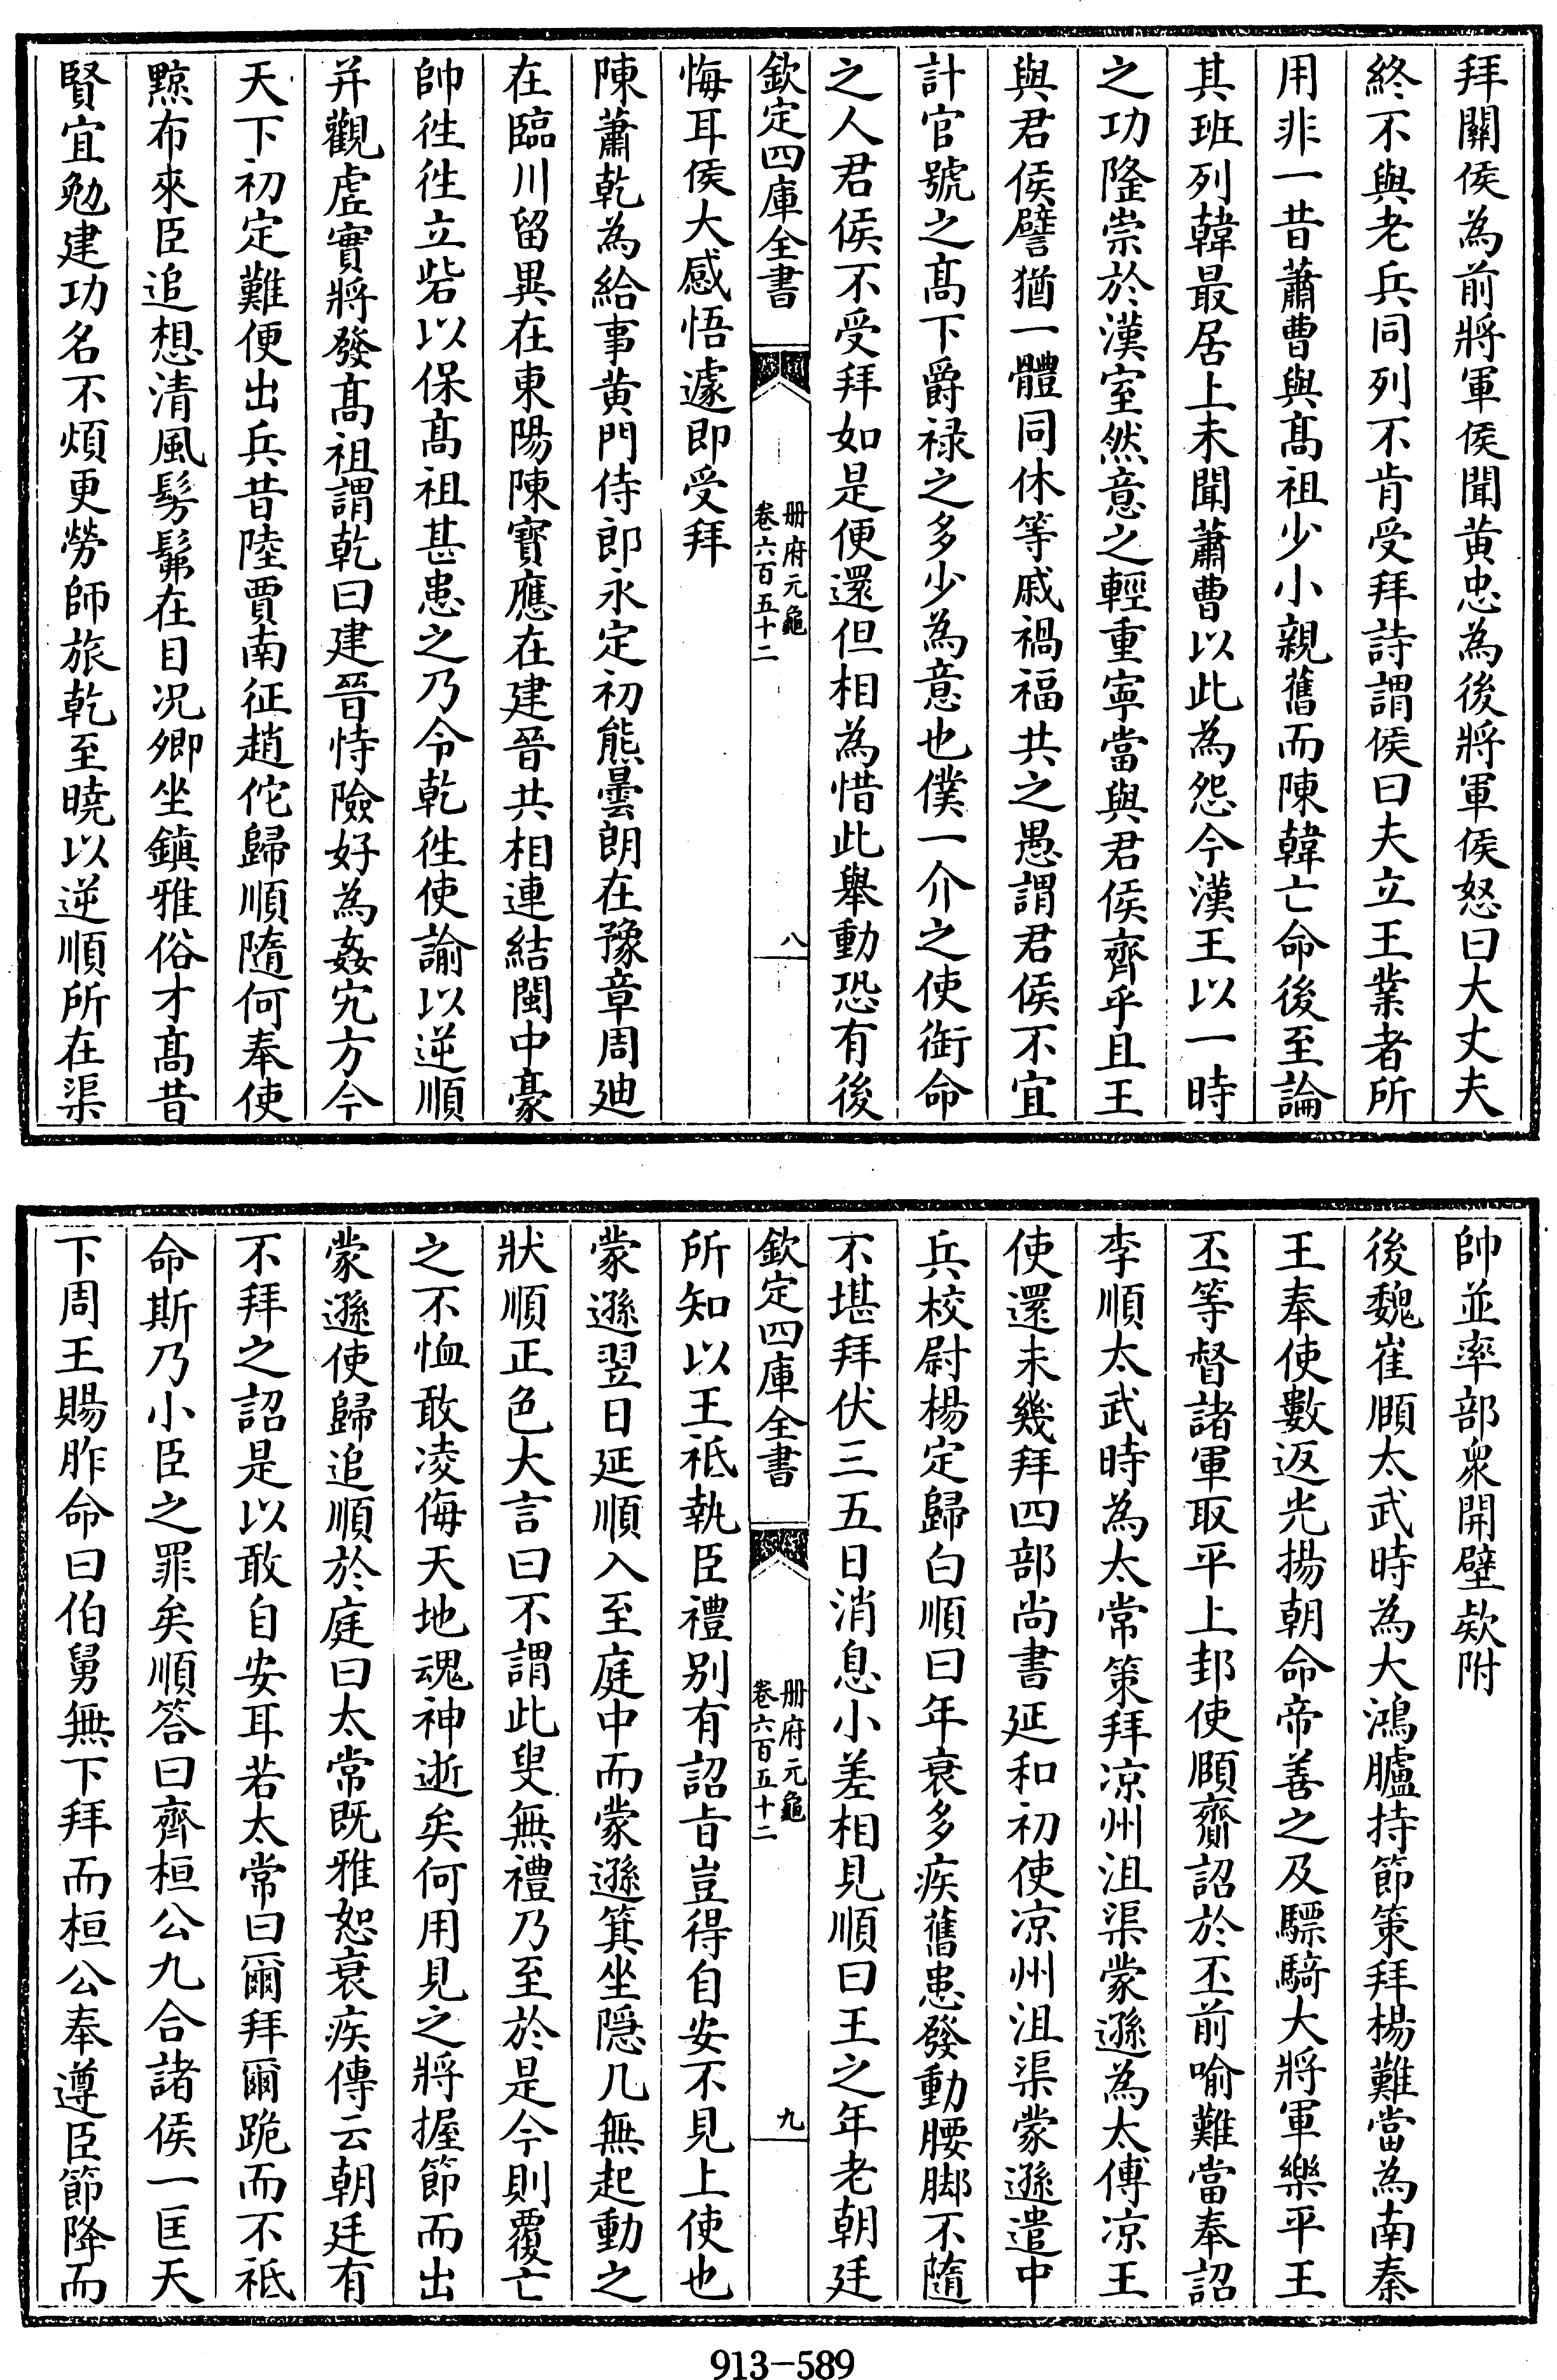 拜關侯為前將軍侯聞黄忠為後將軍侯怒曰大丈夫
終不與老兵同列不肯受拜詩謂侯曰夫立王業者所
用非一昔蕭曹與髙祖少小親舊而陳韓亡命後至論
其班列韓最居上未聞蕭曹以此為怨今漢王以一時
之功隆崇於漢室然意之輕重寧當與君侯齊乎且王
與君侯譬猶一體同休等戚禍福共之愚謂君侯不宜
計官號之髙下爵禄之多少為意也僕一介之使銜命
之人君侯不受拜如是便還但相為惜此舉動恐有後
欽定四庫全書
册府元龜
卷六百五十二
八
悔耳侯大感悟遽即受拜
陳蕭乾為給事黄門侍郎永定初熊曇朗在豫章周廸
在臨川留異在東陽陳寳應在建晉共相連結閩中豪
帥徃徃立砦以保髙祖甚患之乃令乾徃使諭以逆順
并觀虚實將發髙祖謂乾曰建晉恃險好為姦宄方今
天下初定難便出兵昔陸賈南征趙佗歸順隨何奉使
黥布來臣追想清風髣髴在目况卿坐鎮雅俗才髙昔
賢宜勉建功名不煩更勞師旅乾至曉以逆順所在渠
帥並率部衆開壁欵附
後魏崔頥太武時為大鴻臚持節策拜楊難當為南秦
王奉使數返光揚朝命帝善之及驃騎大將軍樂平王
丕等督諸軍取平上邽使頥齎詔於丕前喻難當奉詔
李順太武時為太常策拜凉州沮渠蒙遜為太傅凉王
使還未幾拜四部尚書延和初使凉州沮渠蒙遜遣中
兵校尉楊定歸白順曰年衰多疾舊患發動腰脚不隨
不堪拜伏三五日消息小差相見順曰王之年老朝廷
欽定四庫全書
册府元龜
卷六百五十二
九
所知以王祗執臣禮别有詔㫖豈得自安不見上使也
蒙遜翌日延順入至庭中而蒙遜箕坐隠几無起動之
狀順正色大言曰不謂此叟無禮乃至於是今則覆亡
之不恤敢凌侮天地魂神逝矣何用見之將握節而出
蒙遜使歸追順於庭曰太常既雅恕衰疾傳云朝廷有
不拜之詔是以敢自安耳若太常曰爾拜爾跪而不祗
命斯乃小臣之罪矣順答曰齊桓公九合諸侯一匡天
下周王賜胙命曰伯舅無下拜而桓公奉遵臣節降而
913-589